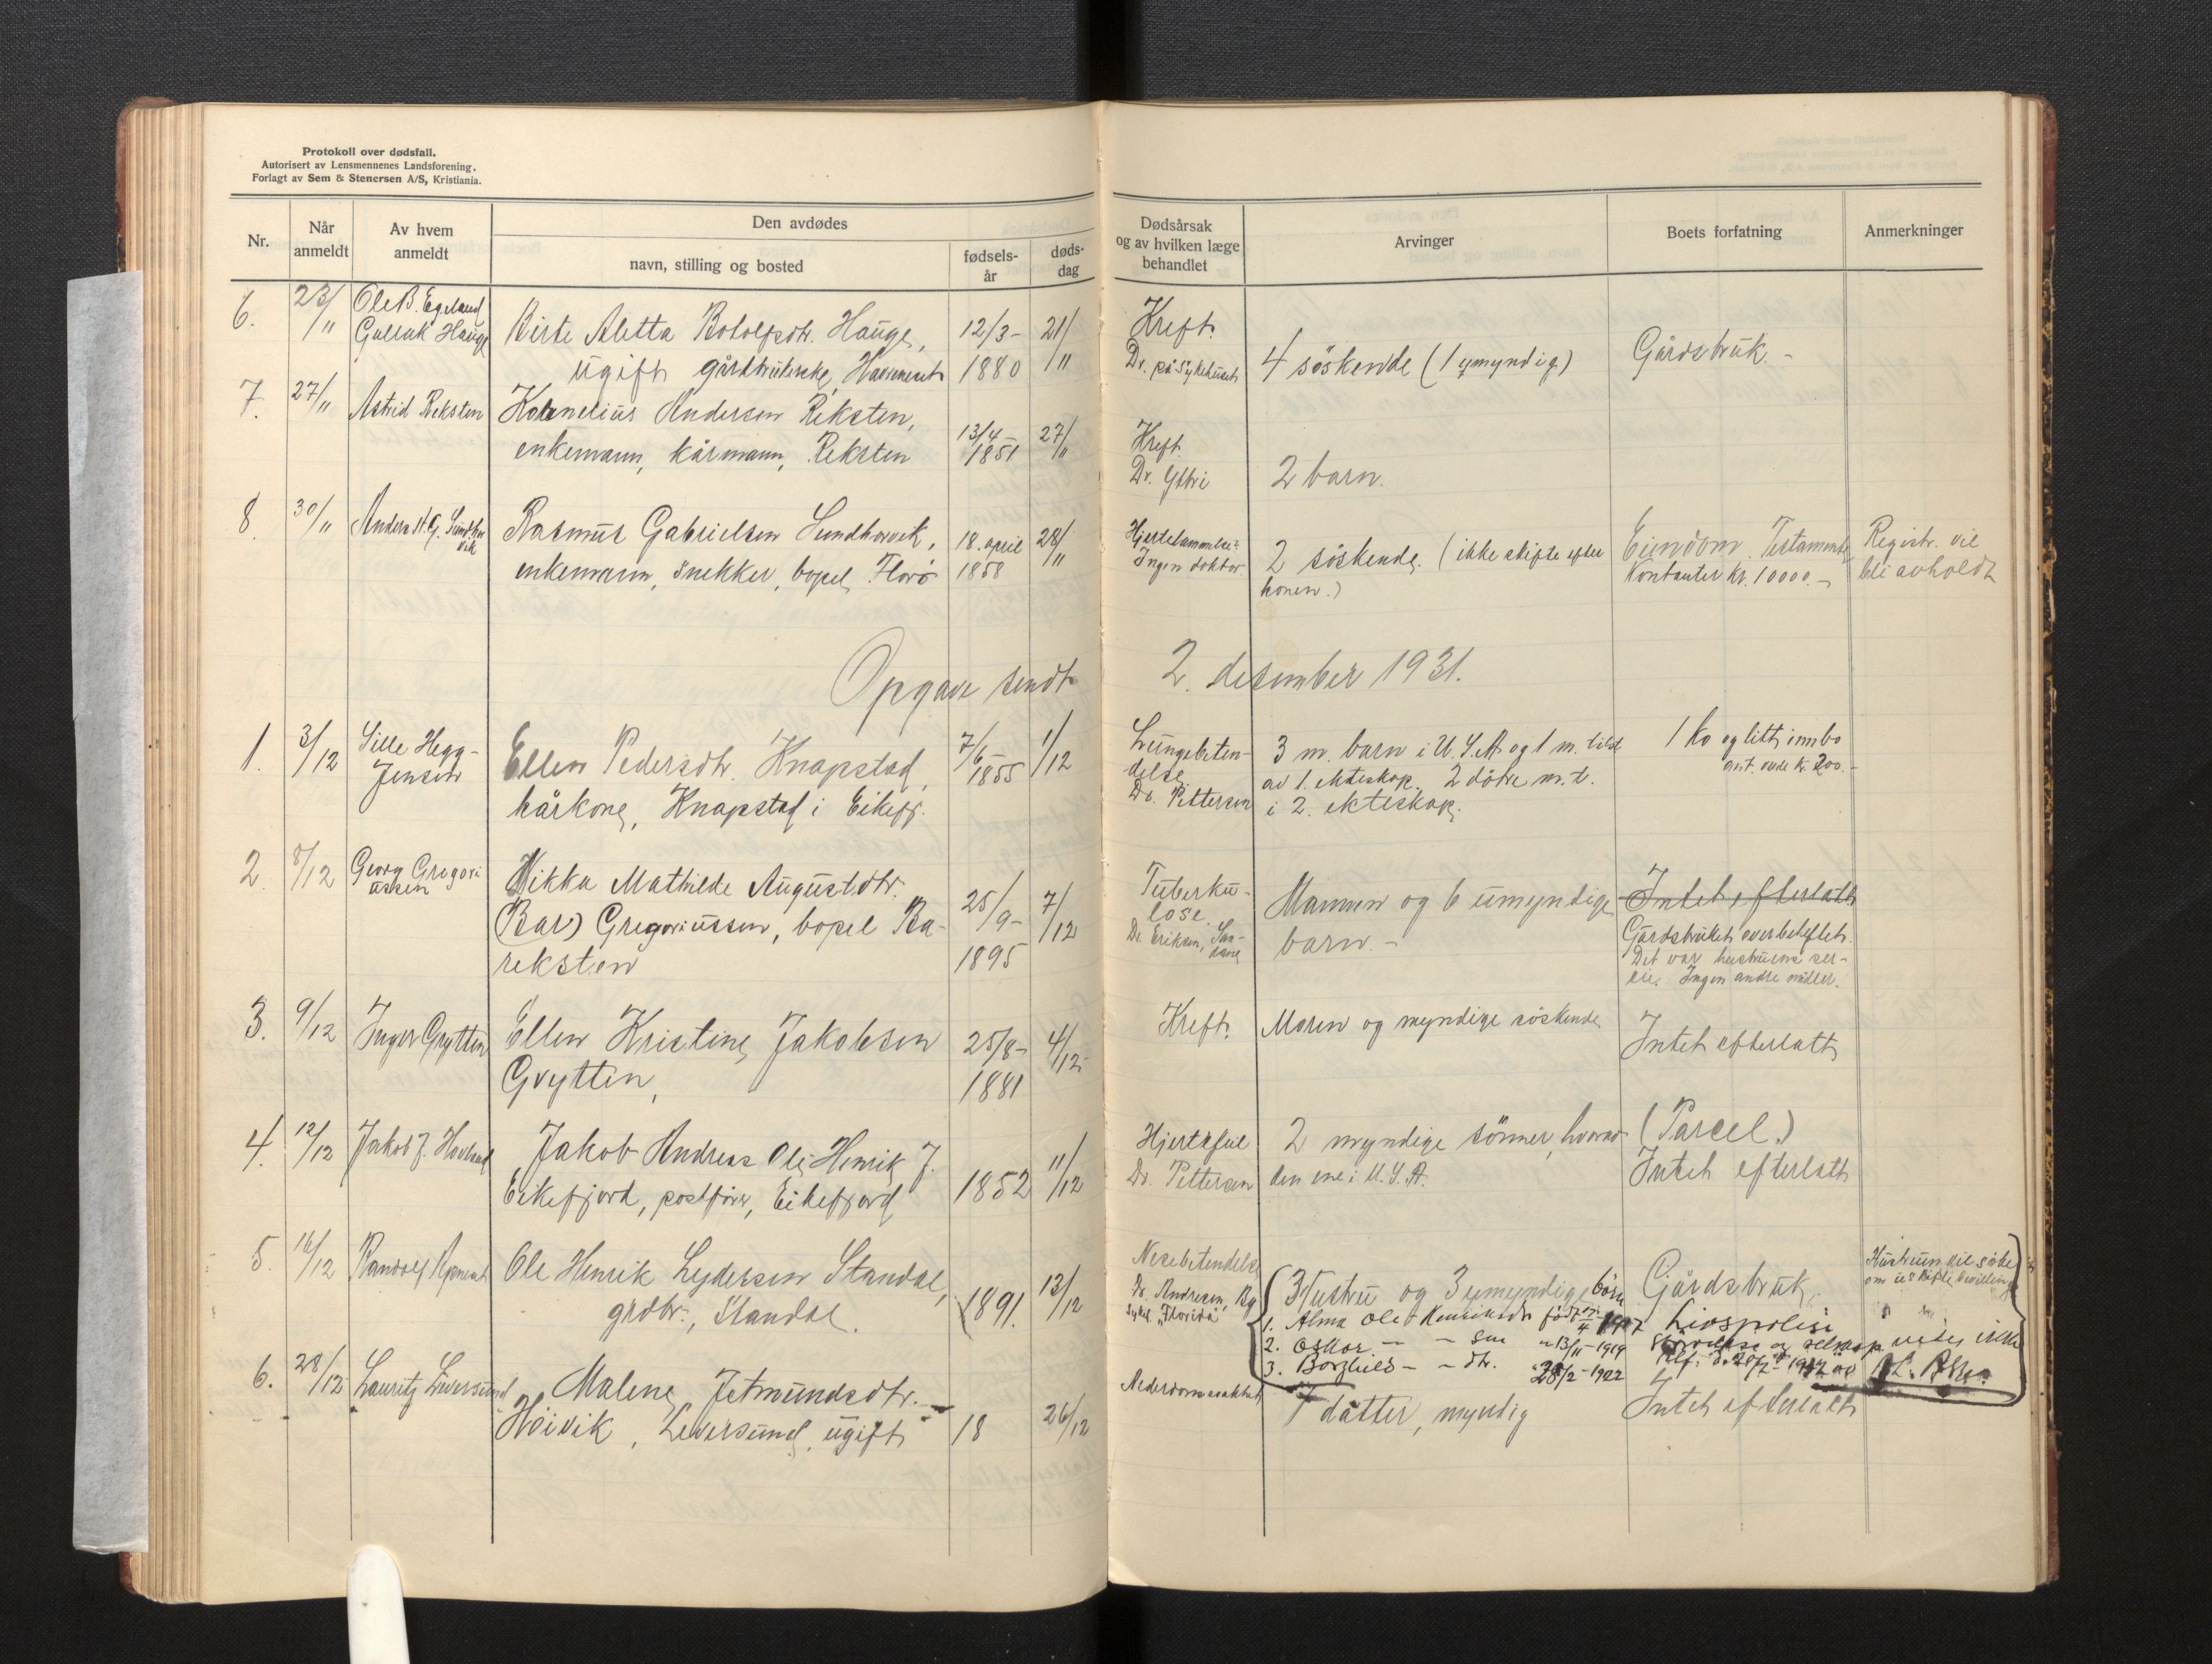 Protokoll over dødsfall.
Autorisert av Lensmennenes Landsforening.
Forlagt av Sem & Stenersen A/S, Kristiania.
Nr.
Når anmeldt
Av hvem anmeldt
Den avdødes
navn, stilling og bosted
fødsels-år
døds-dag
Dødsårsak og av hvilken læge behandlet
Arvinger
Boets forfatning
Anmerkninger
6. 23/11 Ole B. Egeland
Hauge
Birte Aletta Botolfsdtr. Hauge,
ugift gårdbrukerske,
12/3-1880
21/11
Kreft.
Dr. på Sykehuset
4 söskende (1 umyndig)
Gårdsbruk.-
7. 27/11 Astrid Reksten
Kornelius Andersen Reksten,
enkemann, kårmann, Reksten
13/4-1851
27/11
Kreft.
Dr. Ytri
2 barn.
8. 30/11 Anders H. G.
Rasmus Gabrielsen Sundhovvik,
enkemann, snekker, bopel Florö
18. april 1858
28/11
Hjertelammelse?
Ingen doktor
2 söskende. (ikke skifte efter
konen.)
Eiendom. Testamente
Kontanter kr. 10000.-
Registr. vil
bli avholdt
Opgave sendt 2. desember 1931.
1. 3/12 Sille Hegg-
Jensen
Ellen Pedersdtr. Knapstad,
kårkone, Knapstad i Eikefj.
7/6-1855
1/12
Lungebeten-
delse
Dr. Pettersen
3 m. barn i U.S.A og 1 m. tilst
av 1. ekteskap. 2 døtre m. t.
i 2. ekteskap.
1 ko og litt innbo
200.-
2. 8/12 Georg Gregori
ussen
Hikka Mathilde Augustdtr.
(Bar) Gregoriussen, bopel Ba-
reksten
25/9-1895
7/12
Tuberku-
lose.
Dr. Eriksen, San-
dane
Mannen og 6 umyndige
barn.-
Intet efterlatt
Gårdsbruket overbeheftet.
Det var hustruens sær-
eie. Ingen andre midler.
3. 9/12 Inger Grytten
Ellen Kristine Jakobsen
Grytten,
25/8-1881
4/12
Kreft.
Moren og myndige söskende
Intet efterlatt
4. 12/12 Jakob J. Hovland
Jakob Andreas Ole Henrik J.
Eikefjord, postförer, Eikefjord
1852
11/12
Hjertefeil
Dr. Pettersen
2 myndige sönner, hvorav
den ene i U.S.A.
(Parcel.)
Intet efterlatt
5. 16/12
Ole Henrik Lydersen Standal,
grdbr., Standal.
1891.
13/12
Nesebetendelse
Dr. Andresen, Bg
Sykeh. "Florida"
Hustru og 3 umyndige börn
1. Alma Ole Henriksdtr född 1917
2. Oskar — " — sön " 13/11-1919
3. Borghild — " — dtr. " 28/2-1922
Gjårdsbruk.
Livspolise
Hustruen vil söke
om uskiftebevilling
6. 28/12 Lauritz Leversund
Malene Jetmundsdtr.
Höivik, Leversund, ugift
18
26/12
1 datter, myndig
Intet efterlatt